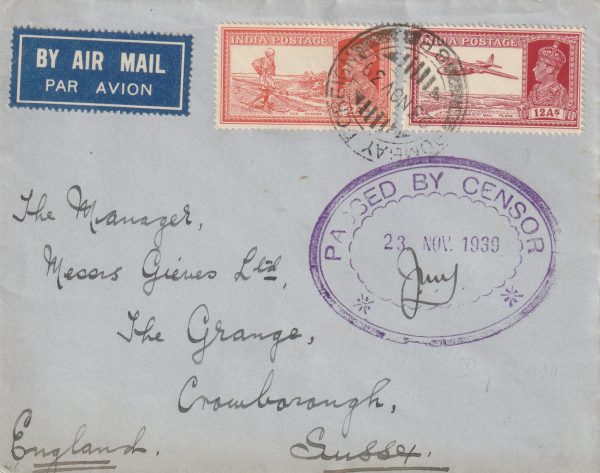 BY AIR MAIL
PAR AVION
INDIA POSTAGE
INDIA POSTAGE
12As
PASSED BY CENSOR
23 NOV. 1939
The Manager,
Messrs Gieves Ltd,
The Grange,
Crowborough,
England.
Sussex.